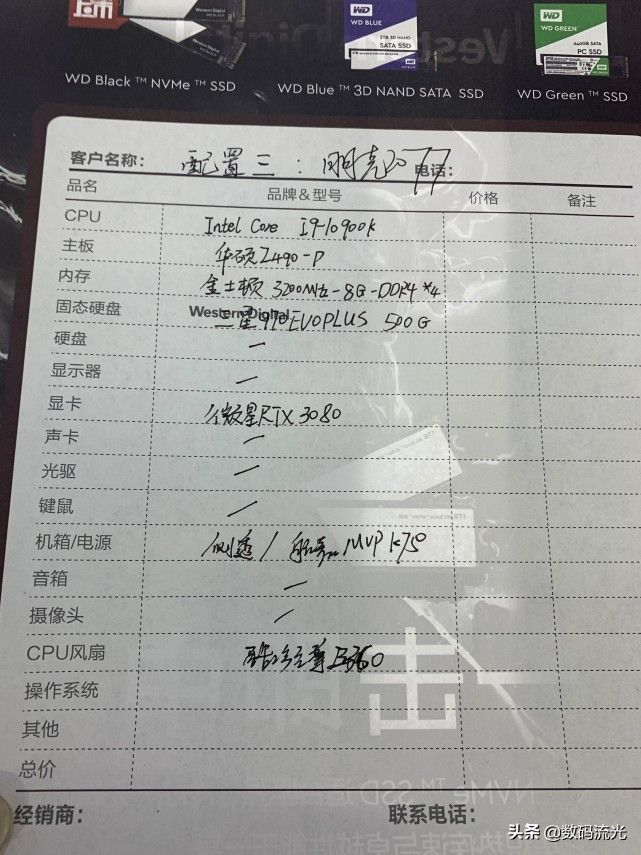 WD BLUE
2TB 3D NAND
SATA SSD
WD GREEN
240GB SATA
PC SSD
WD Black ™ NVMe ™ SSD
WD Blue ™ 3D NAND SATA SSD
WD Green ™ SSD
客户名称： 配置三： 电话：
品名 品牌&型号 价格 备注
CPU Intel Core i9-10900k
主板 华硕Z490-P
内存 金士顿 3200MHz-8G-DDR4*4
固态硬盘 Western Digital 三星970EVOPLUS 500G
硬盘 —
显示器 —
显卡 微星RTX 3080
声卡 —
光驱 —
键鼠 —
机箱/电源 侧透 / MVP K750
音箱 —
摄像头 —
CPU风扇
操作系统
其他
总价
经销商： 联系电话：
头条 @数码流光